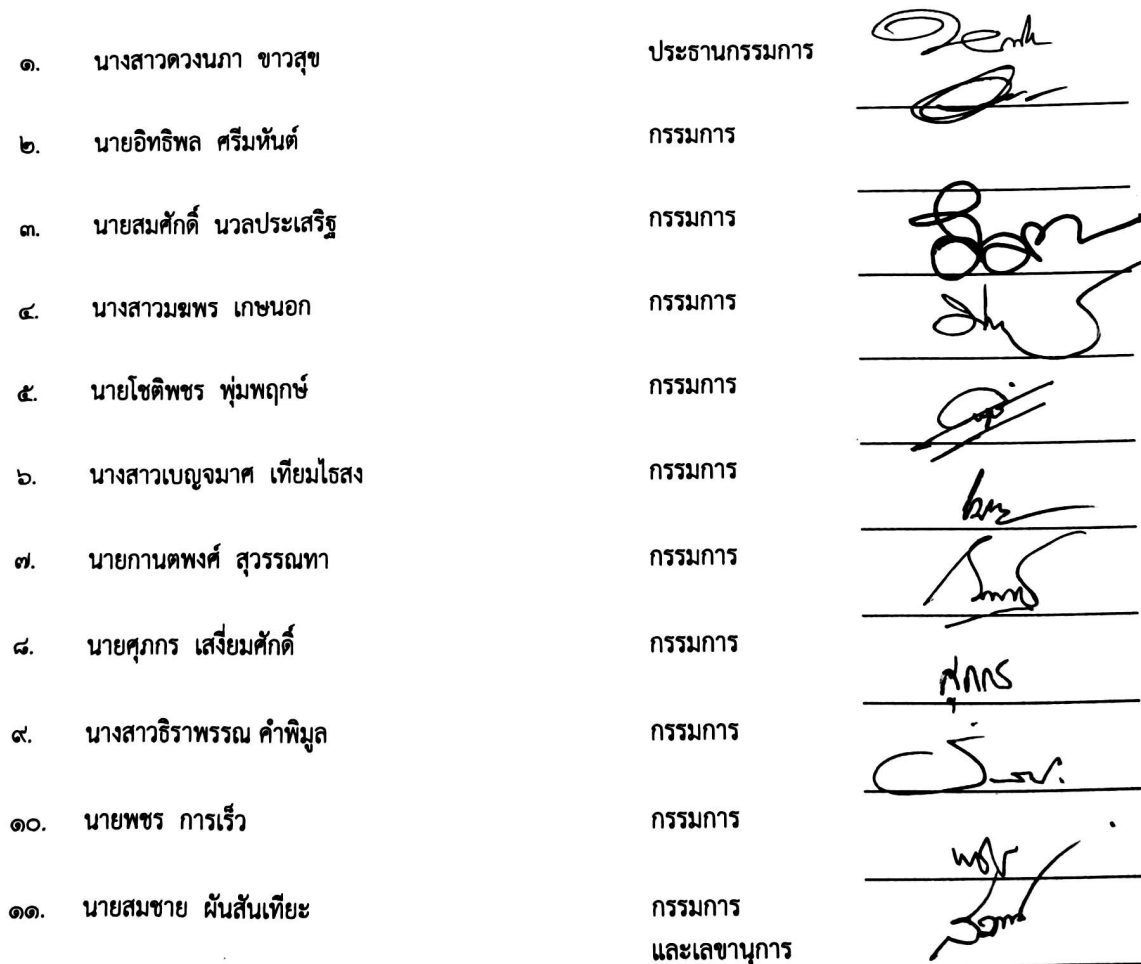 ๑. นางสาวดวงนภา ขาวสุข ประธานกรรมการ
๒. นายอิทธิพล ศรีมหันต์ กรรมการ
๓. นายสมศักดิ์ นวลประเสริฐ กรรมการ
๔. นางสาวมฆพร เกษนอก กรรมการ
๕. นายโชติพชร พุ่มพฤกษ์ กรรมการ
๖. นางสาวเบญจมาศ เทียมไธสง กรรมการ
๗. นายกานตพงศ์ สุวรรณทา กรรมการ
๘. นายศุภกร เสงี่ยมศักดิ์ กรรมการ
ศุภกร
๙. นางสาวธิราพรรณ คำพิมูล กรรมการ
๑๐. นายพชร การเร็ว กรรมการ
พชร
๑๑. นายสมชาย ผันสันเทียะ กรรมการ
และเลขานุการ